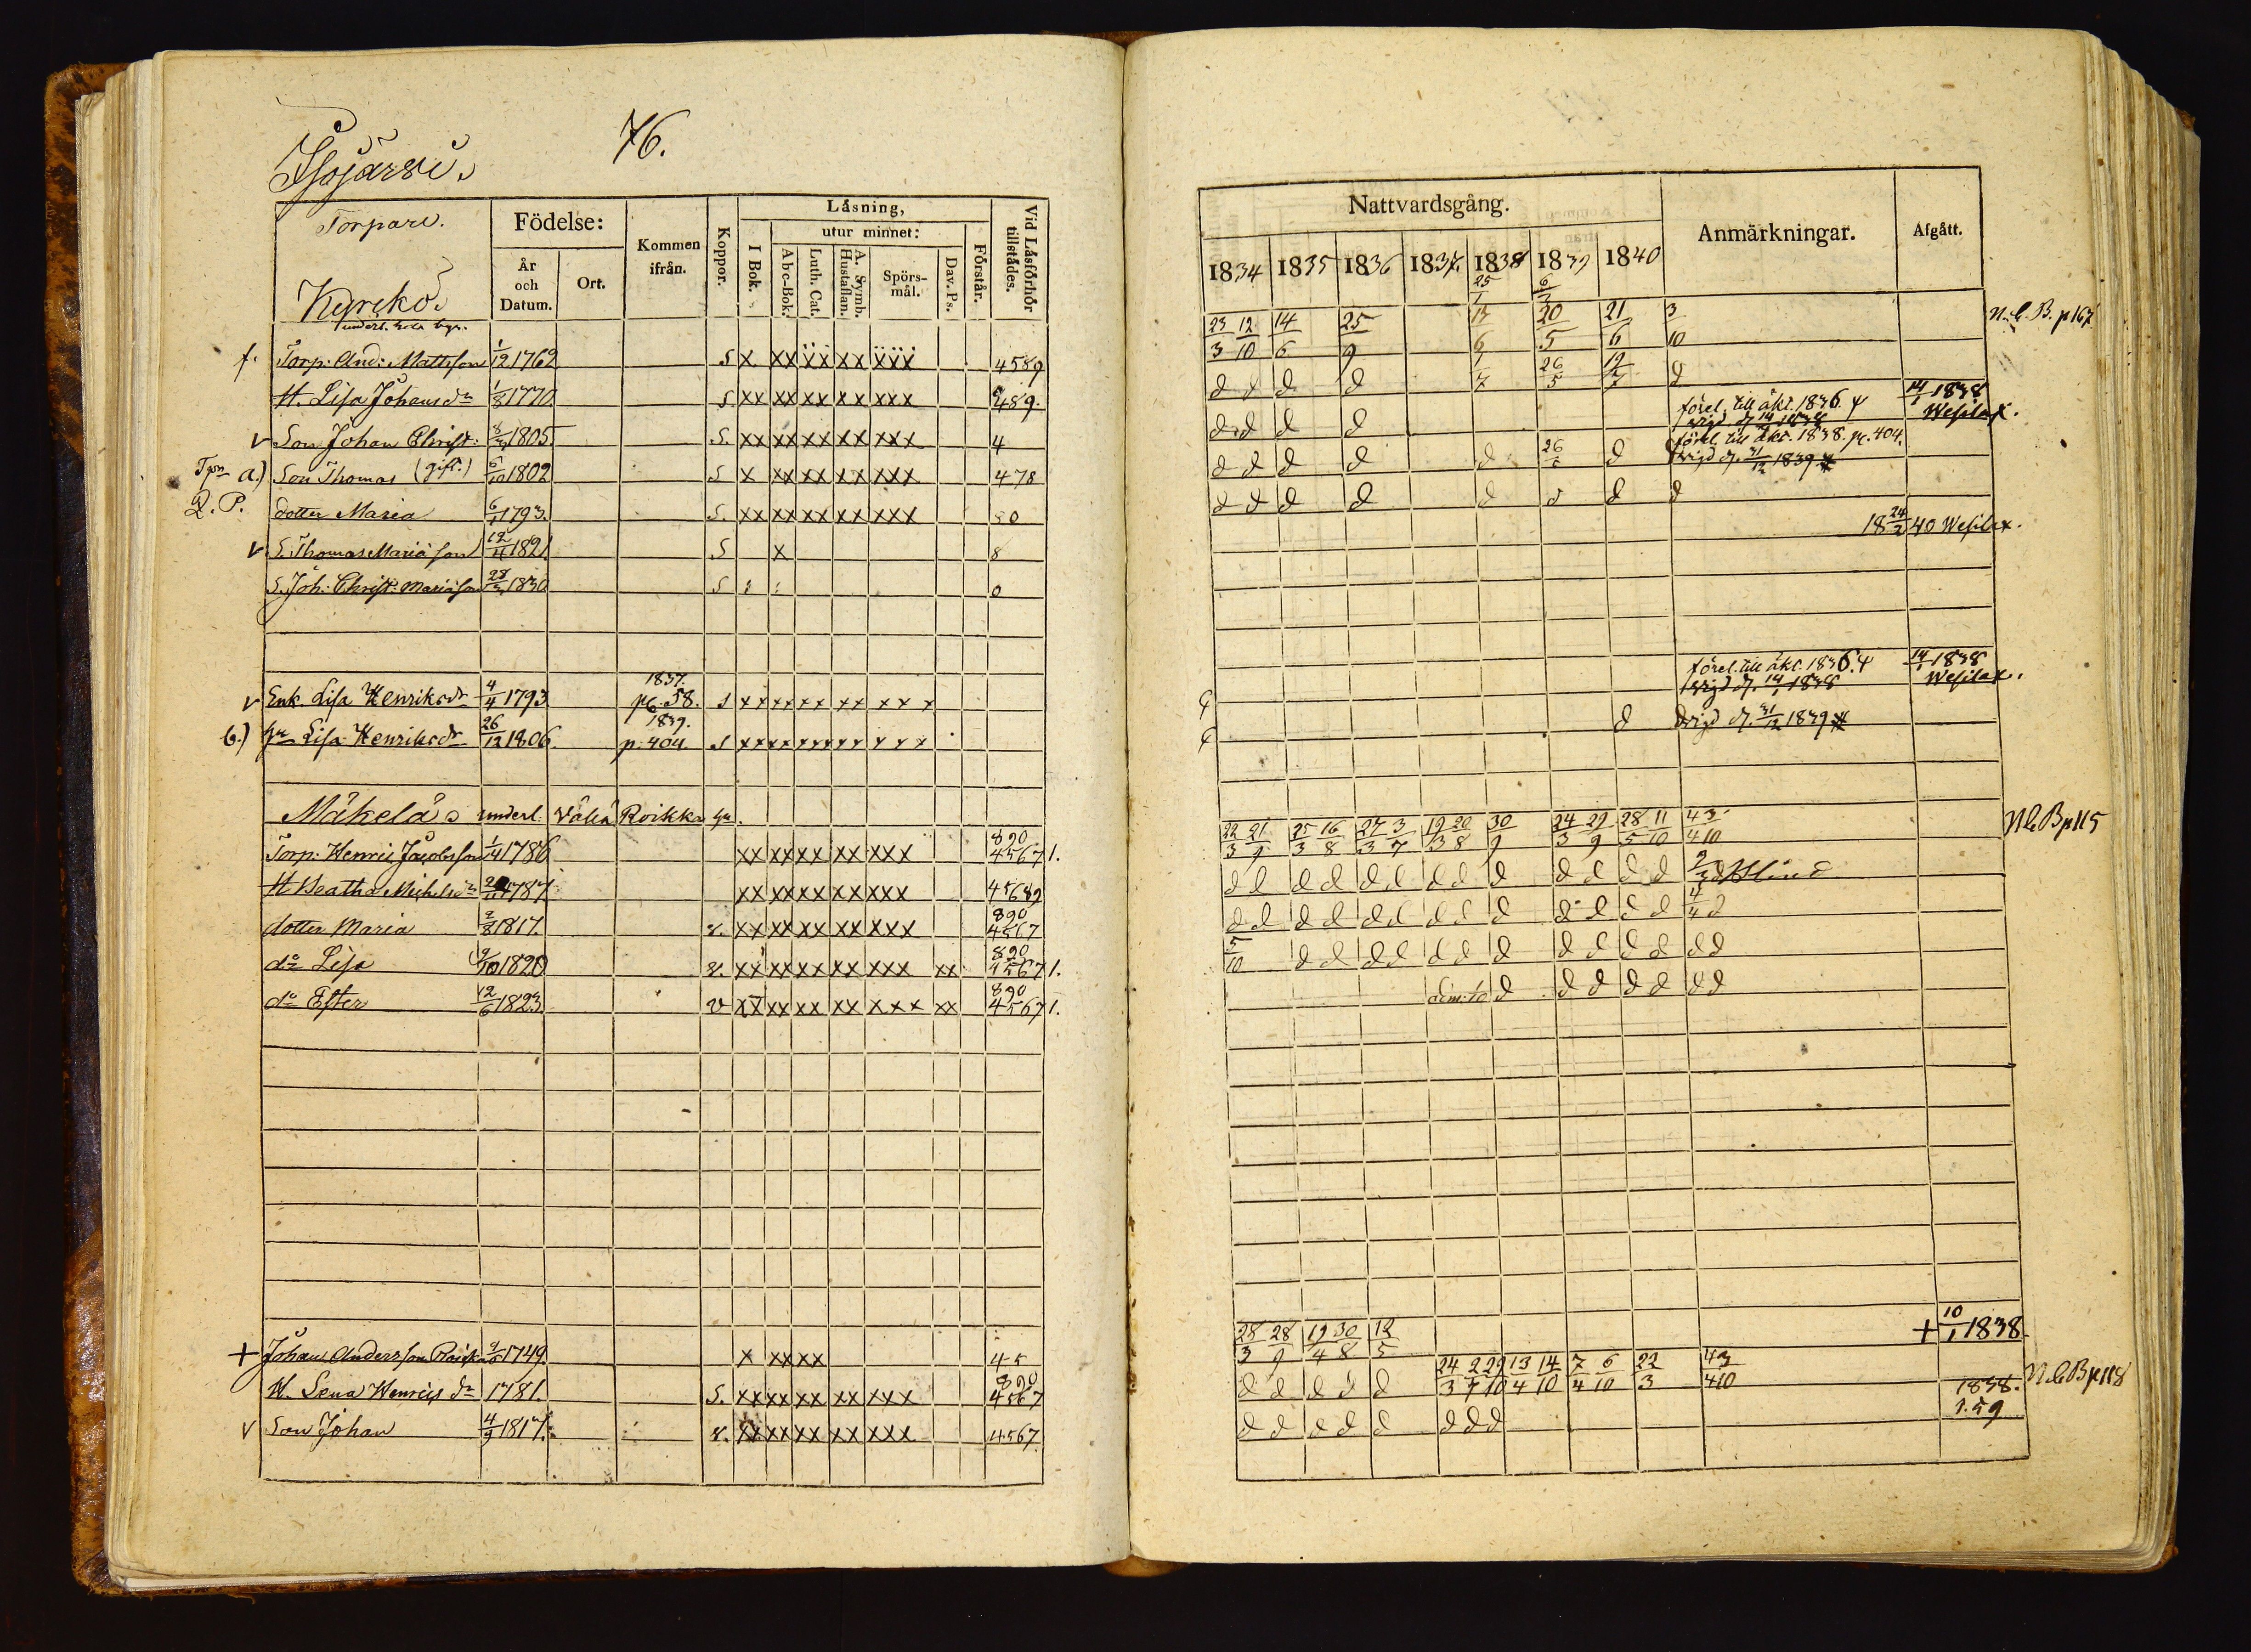 76.
Isojärvi.
Torpare.
Kyrckö.
underl. hela byn.
Födelse:
År och Datum.
Ort.
Kommen ifrån.
Koppor.
Läsning,
I Bok.
utur minnet:
Abc-Bok.
Luth. Cat.
A. Symb. Hustaflan.
Spörsmål.
Dav. Ps.
Förstår.
Vid Läsförhör tillstädes.
f. Torp: And: Mattsson 1/12 1762 S x xx xx xx xxx 4589
H. Lisa Johansdr 1/8 1770. S. xx xx xx xx xxx 489.
v Son Johan Christ: 1805. S. xx xx xx xx xxx 4
Tpr a.) Son Thomas (gift.) 1802 S x xx xx xx xxx 478
Q. P. dotter Maria 1793. S. xx xx xx xx xxx
v S. Thomas Mariæ son 1821 S x 8
S. Joh: Christ: Mariæ son 1830 S 0
v Enk. Lisa Henriksdr 4/4 1793 1837. p. 58. S xx xx xx xx xxx
b.) hu Lisa Henriksdr 26/12 1806. 1839. p. 404 S xx xx xx xx xxx
Mäkelä underl. Väliä Roikka hn.
Torp: Henric Jacobsson 1786 xx xx xx xx xxx 890 45671.
H Beatha Michelsdr 1787 xx xx xx xx xxx 45689
dotter Maria 1817. v. xx xx xx xx xxx 890 4567
do Lisa 9/10 1820 v. xx xx xx xx xxx xx 890 45671.
do Ester 12/6 1823. v xx xx xx xx xxx xx 890 45671.
+ Johan Andersson 1749 x xx xx 45
H. Lena Henrics dr 1781. S. xx xx xx xx xxx 890 4567
v Son Johan 4/9 1817. v. xx xx xx xx xxx 4567
Nattvardsgång.
1834 1835 1836 1837. 1838 1839 1840
Anmärkningar.
Afgått.
23/3 12/10 14/6 25/9 20/5 21/6 3/10 N. C. B. p 167
d d d d 26/5 d
d d d d förel. till äkt. 1836. 14/1 1838
wigd d. 14/1 1838 Wesilax.
d d d d d 26/5 d förel. till äkt. 1838. p. 404.
wigd d. 31/12 1839
d d d d d d d d
18 24/2 40 Wesilax.
förel. till äkt. 1836. 14/1 1838
wigd d. 14/1 1838 Wesilax.
d wigd d. 31/12 1839
22/3 21/9 25/3 16/8 27/3 3/7 19/3 20/8 30/9 24/3 29/9 28/5 11/10 4/4 3/10 N C B p 115
d d d d d d d d d d d d d Blind
d d d d d d d d d d d d d 4/4 d
5/10 d d d d d d d d d d d d d
d d d d d d d
28/3 28/9 19/4 30/8 12/5 + 10/1 1838.
d d d d d 24/3 2/7 29/10 13/4 14/10 7/4 6/10 22/3 4/4 3/10 N C B p 118
d d d d d d d d 1838.